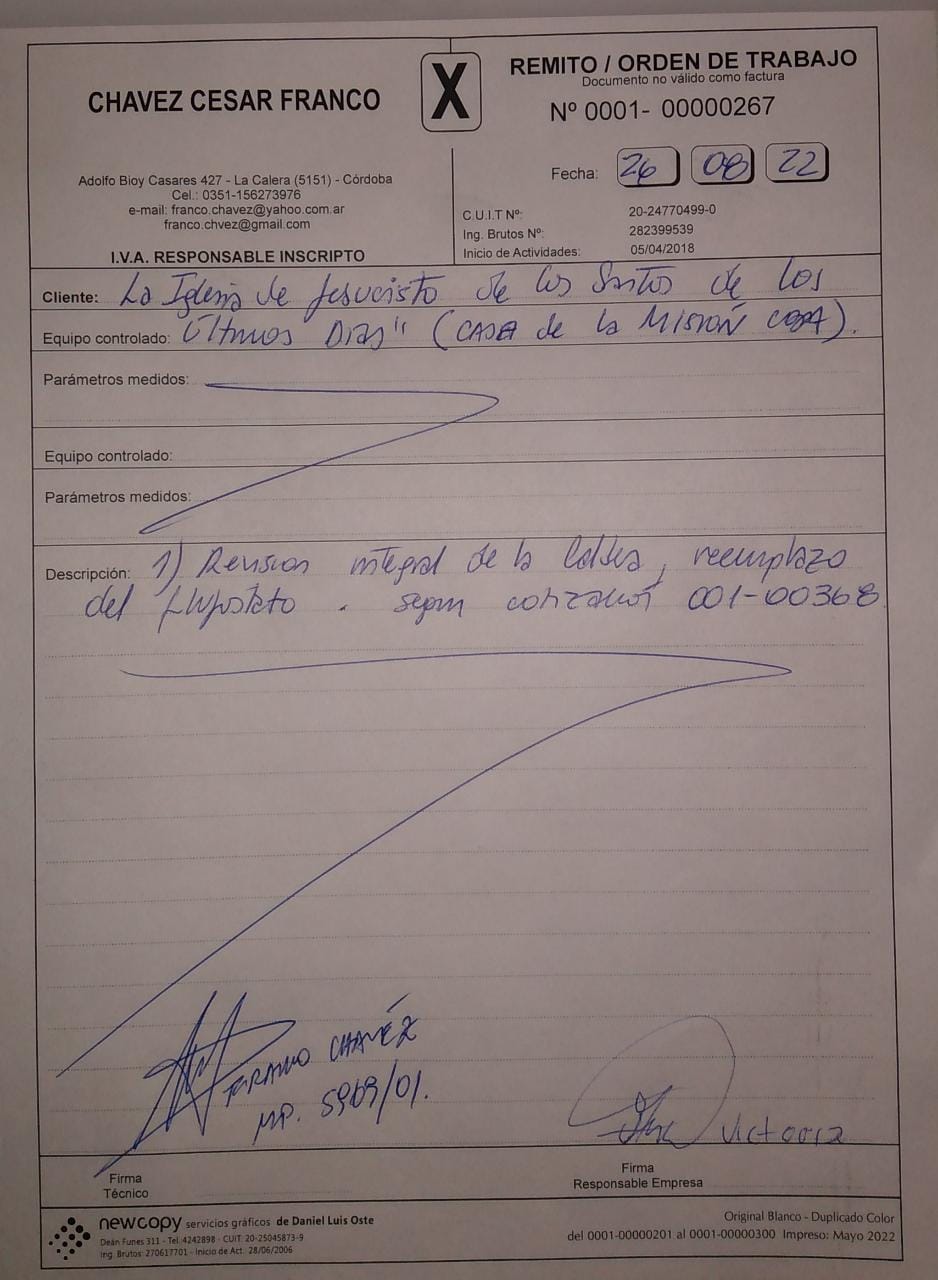 CHAVEZ CESAR FRANCO
X
REMITO / ORDEN DE TRABAJO
Documento no válido como factura
Nº 0001- 00000267
Fecha: 26 08 22
Adolfo Bioy Casares 427 - La Calera (5151) - Córdoba
Cel.: 0351-156273976
e-mail: franco.chavez@yahoo.com.ar
franco.chvez@gmail.com
I.V.A. RESPONSABLE INSCRIPTO
C.U.I.T Nº: 20-24770499-0
Ing. Brutos Nº: 282399539
Inicio de Actividades: 05/04/2018
Cliente: La Iglesia de Jesucristo de los Santos de los
Equipo controlado: Últimos Días" (CASA de la MISIÓN).
Parámetros medidos:
Equipo controlado:
Parámetros medidos:
Descripción: 1) Revision integral de la Caldera, reemplazo
del flujostato. segun cotización 001-00368
FRANCO CHAVÉZ
MP. 5969/01.
Victoria
Firma
Técnico
Firma
Responsable Empresa
newcopy servicios gráficos de Daniel Luis Oste
Deán Funes 311 - Tel. 4242898 - CUIT 20-25045873-9
Ing. Brutos: 270617701 - Inicio de Act. 28/06/2006
Original Blanco - Duplicado Color
del 0001-00000201 al 0001-00000300 Impreso: Mayo 2022